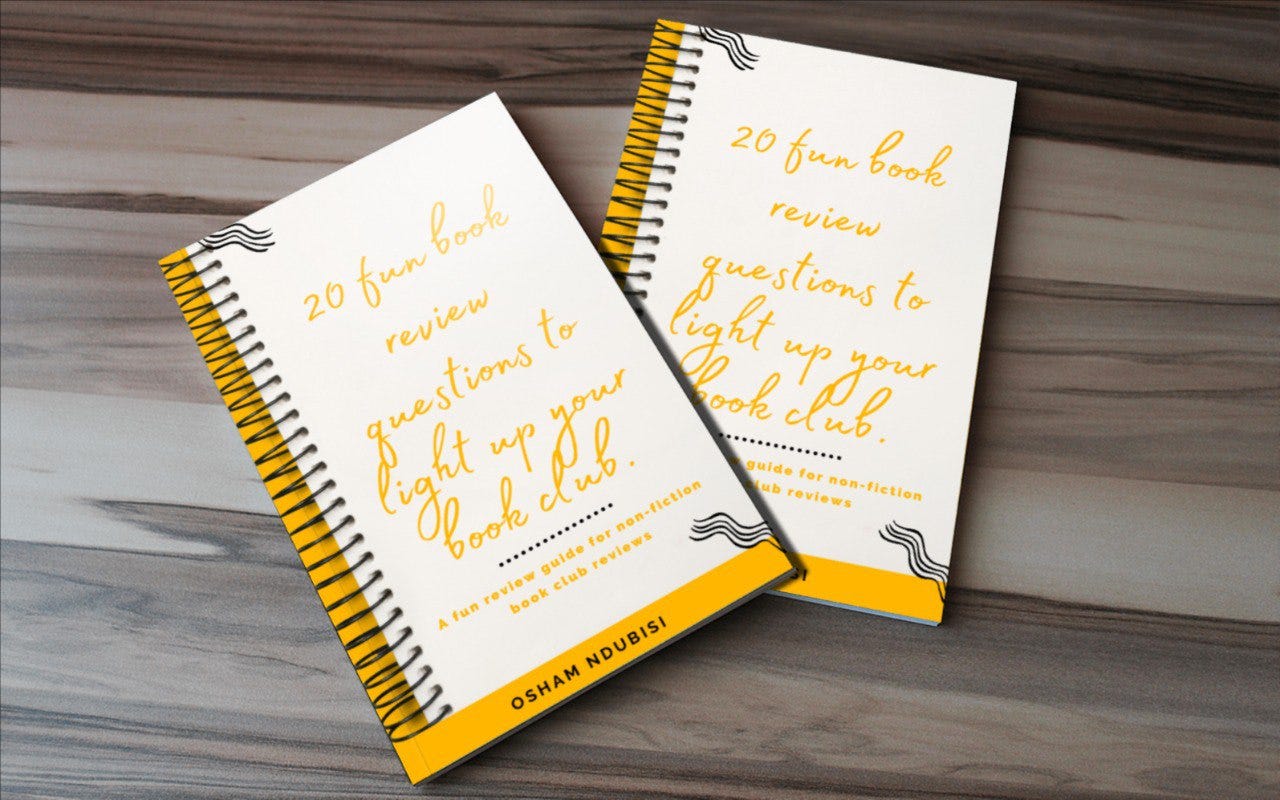 20 fun book
review
questions to
light up your
book club.
A fun review guide for non-fiction
book club reviews
OSHAM NDUBISI
20 fun book
review
questions to
light up your
book club.
guide for non-fiction
reviews